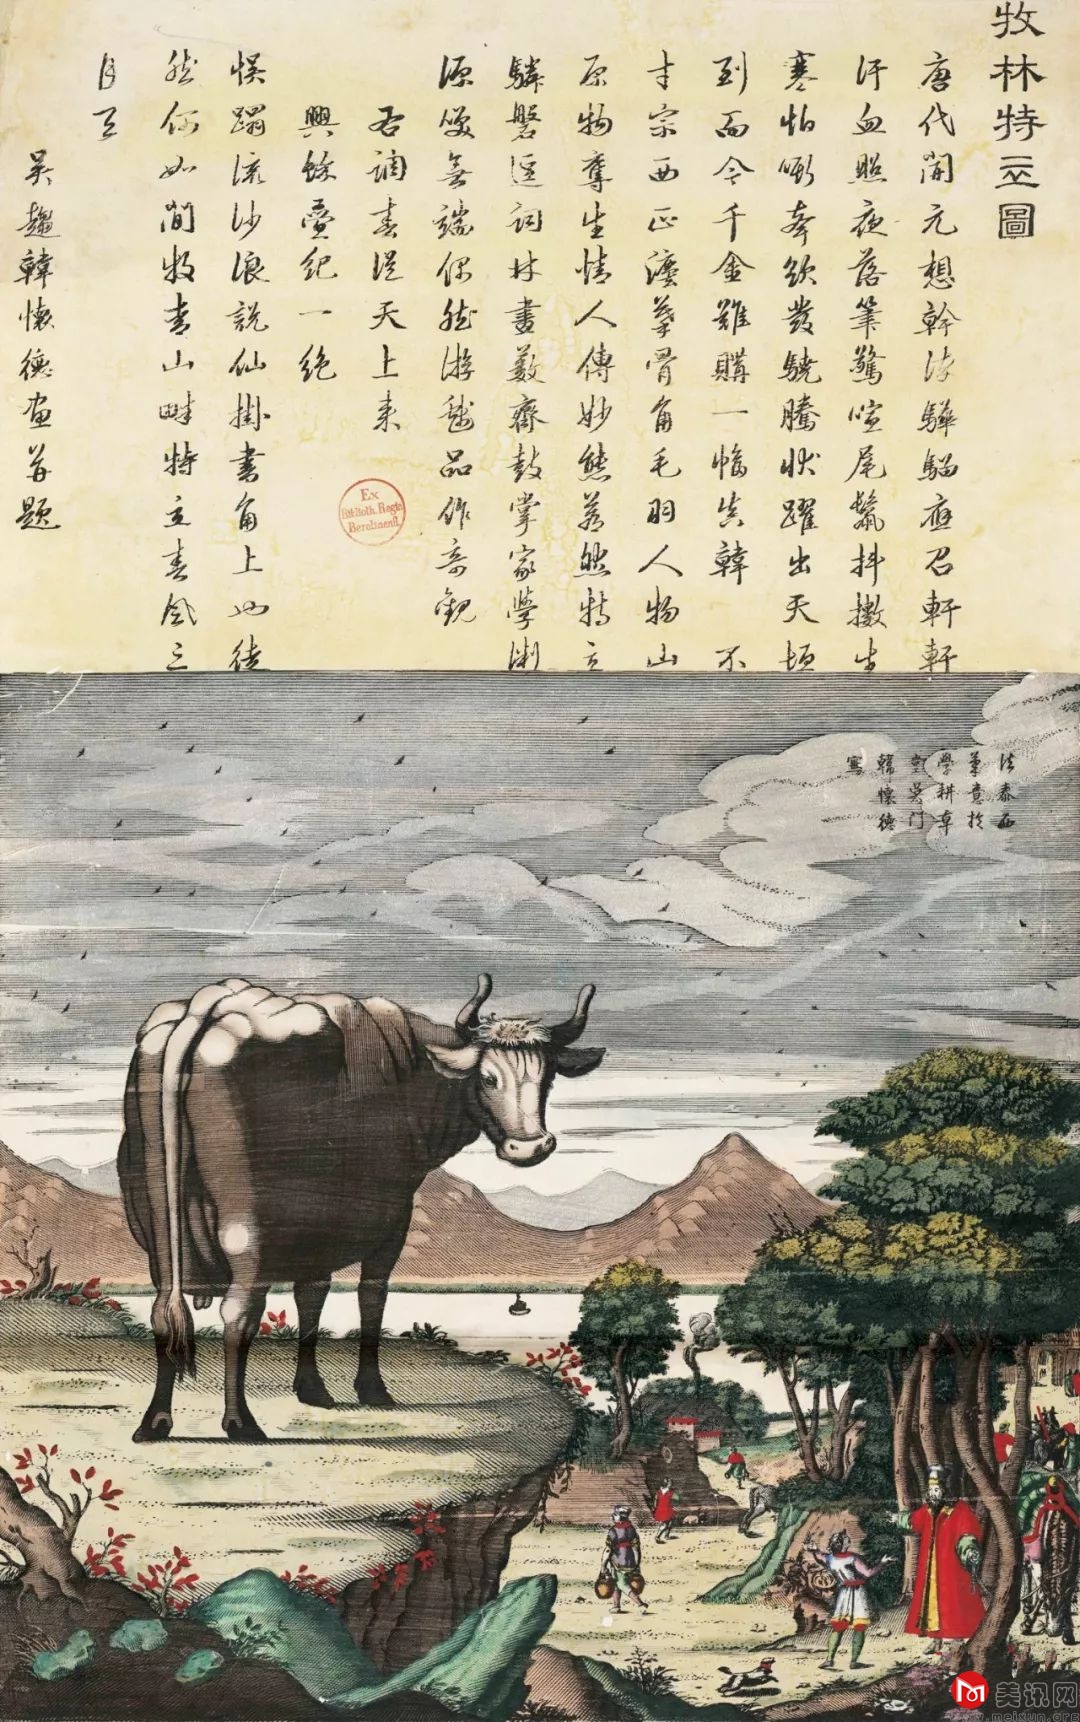 牧林特立圖
唐代開元想幹法驊騮應召軒軒
汗血照夜落筆驚喧尾鬣抖擻生
寒怕嘶奔欲發驍騰狀躍出天垣
到而今千金難購一幅真韓 不
才宗西正摹骨角毛羽人物山
原物奪生情人傳妙態若然特立
驎磐逕詞林畫藪齊鼓掌家學淵
源發無端偶然游戲品作奇觀
右調春從天上來
興餘疊紀一絕
悞蹋流沙浪說仙掛書角上也徒
然何如閒牧青山畔特立春風三
月天
吳趨韓懷德畫并題
Ex
Biblioth. Regia
Berolinenſi.
法泰西
筆意於
學耕草
堂吳門
韓懷德
寫
美讯网
www.meixun.org